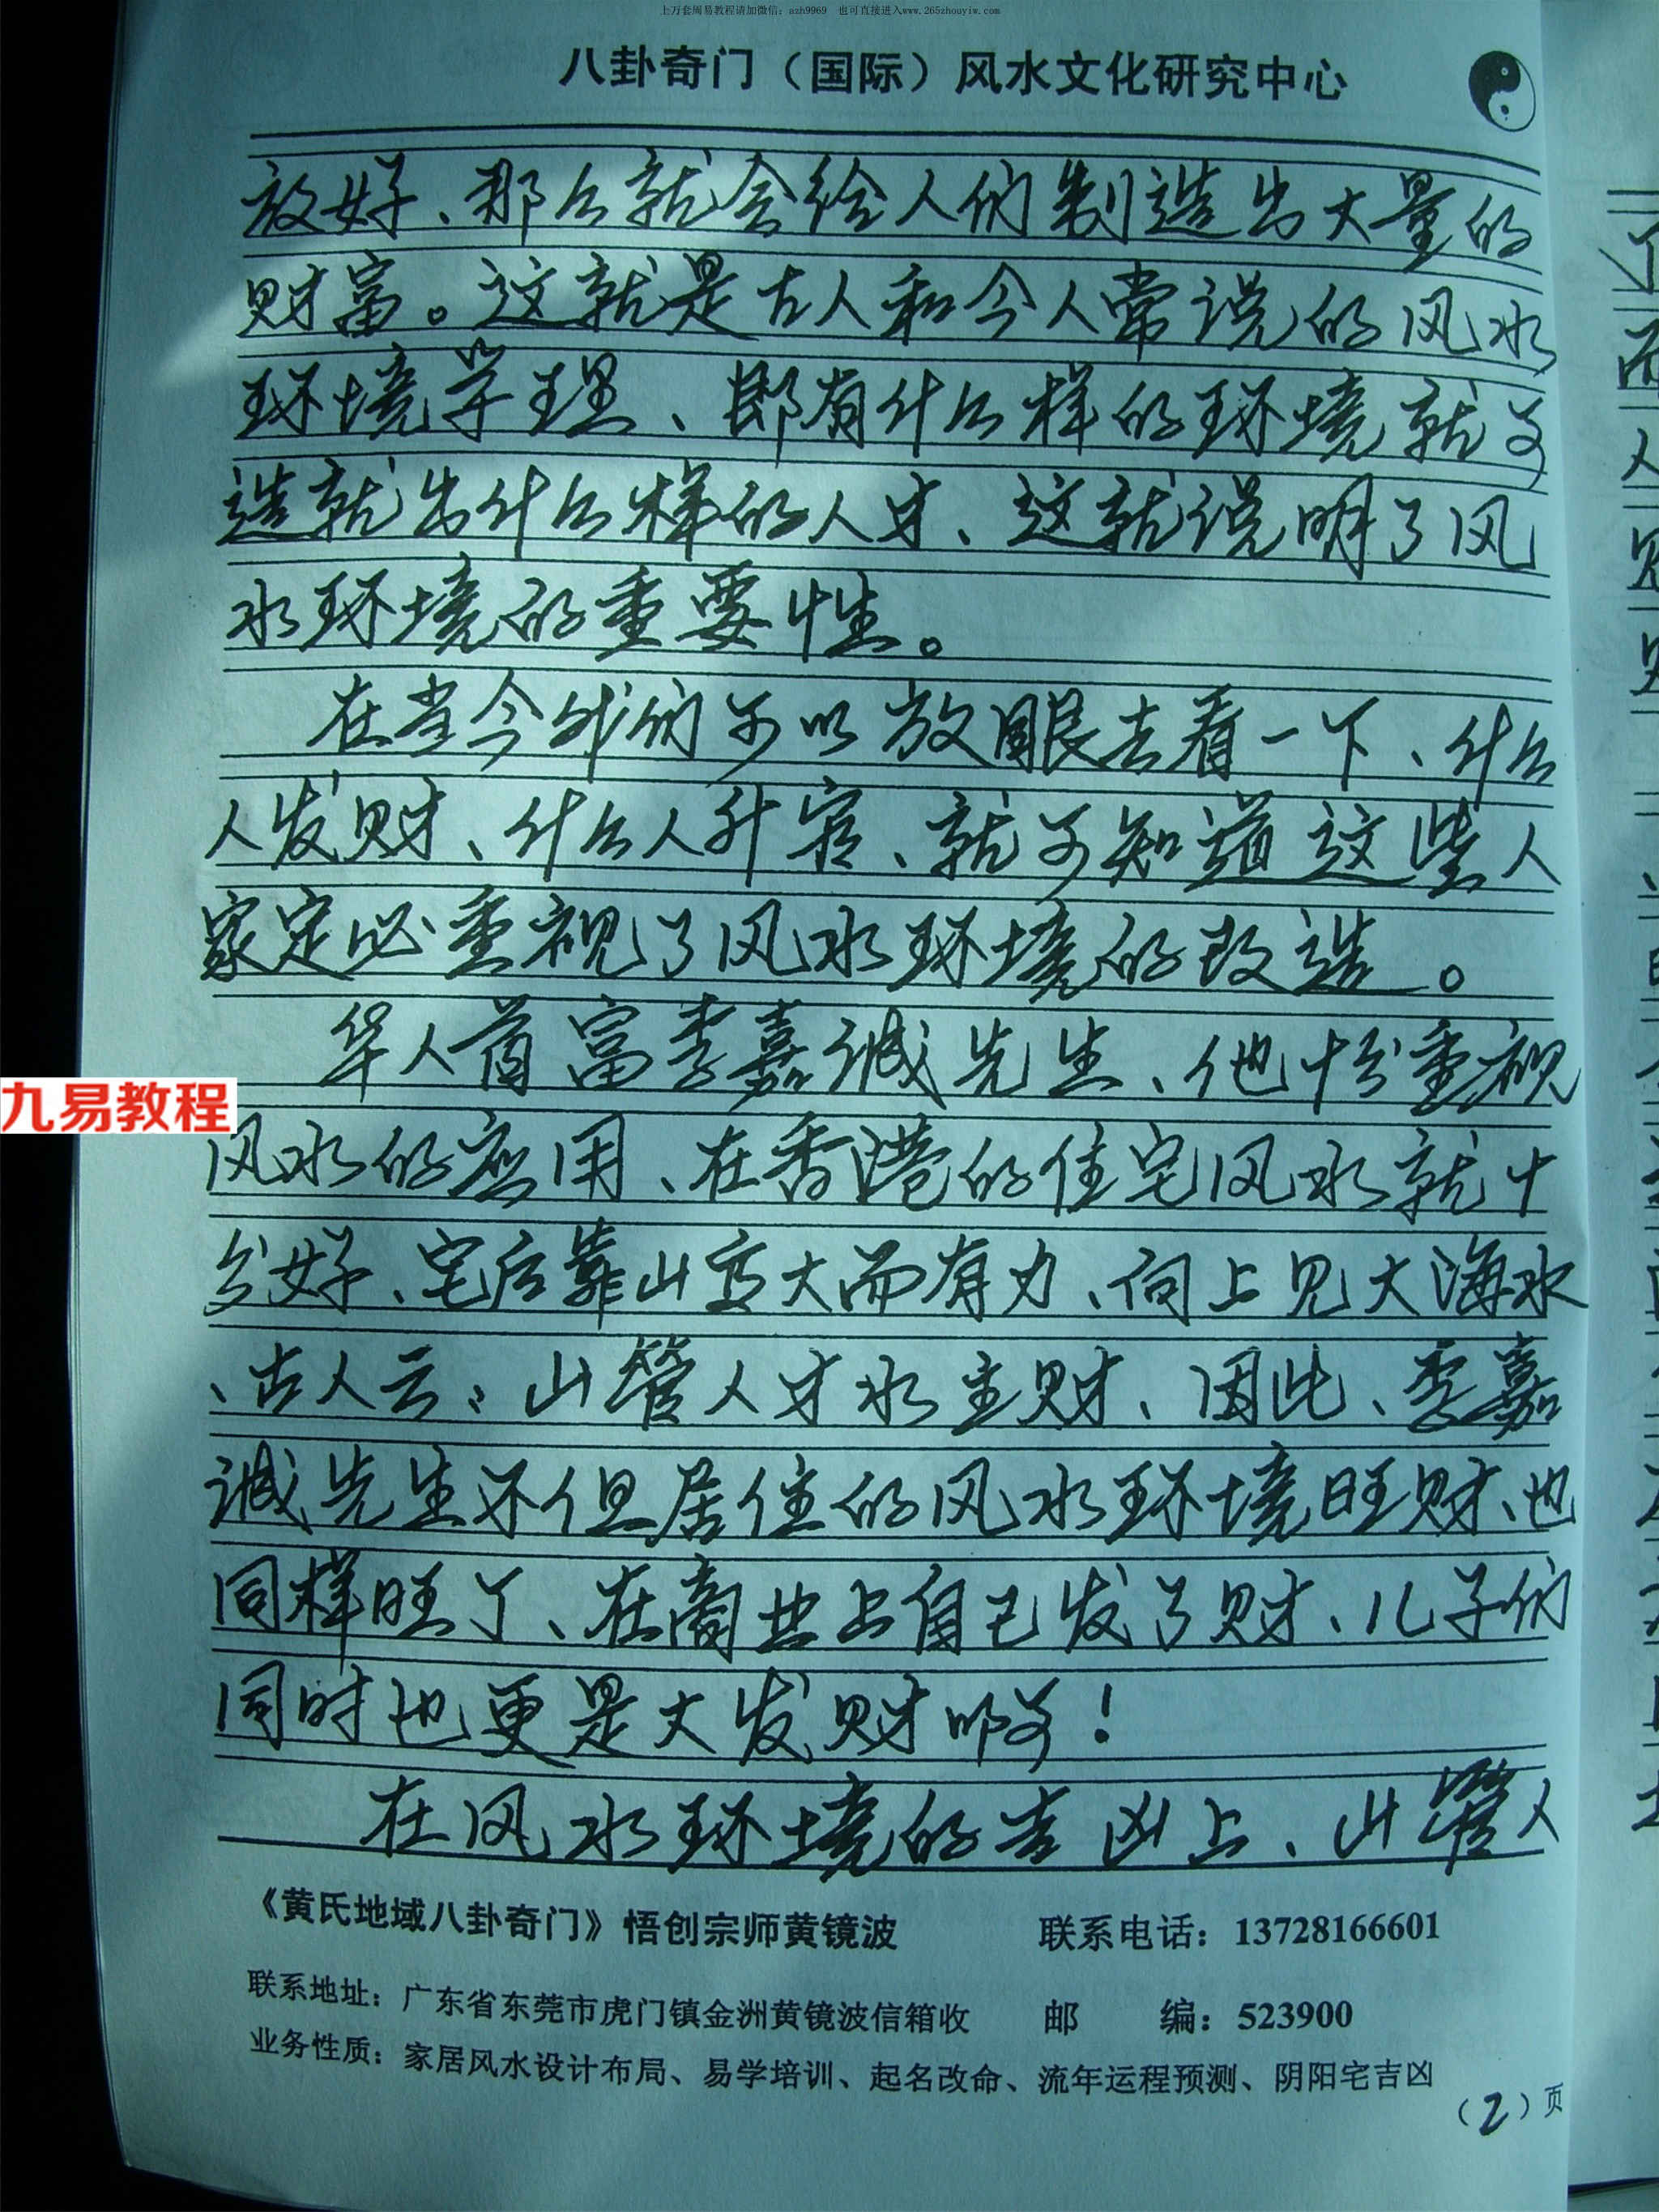 上万套周易教程请加微信：azh9969 也可直接进入www.265zhouyiw.com
八卦奇门（国际）风水文化研究中心
放好、那么就会给人们制造出大量的
财富。这就是古人和今人常说的风水
环境学理、即有什么样的环境就可
造就出什么样的人才、这就说明了风
水环境的重要性。
在当今我们可以放眼去看一下、什么
人发财、什么人升官、就可知道这些人
家定必重视了风水环境的改造。
华人首富李嘉诚先生、他十分重视
九易教程
风水的应用、在香港的住宅风水就十
分好、宅后靠山高大而有力、向上见大海水
、古人云：山管人才水主财、因此、李嘉
诚先生不但居住的风水环境旺财、也
同样旺丁、在商业上自己发了财、儿子们
同时也更是大发财啊！
在风水环境的吉凶上、山管人
《黄氏地域八卦奇门》悟创宗师黄镜波 联系电话：13728166601
联系地址：广东省东莞市虎门镇金洲黄镜波信箱收 邮 编：523900
业务性质：家居风水设计布局、易学培训、起名改命、流年运程预测、阴阳宅吉凶
（2）页